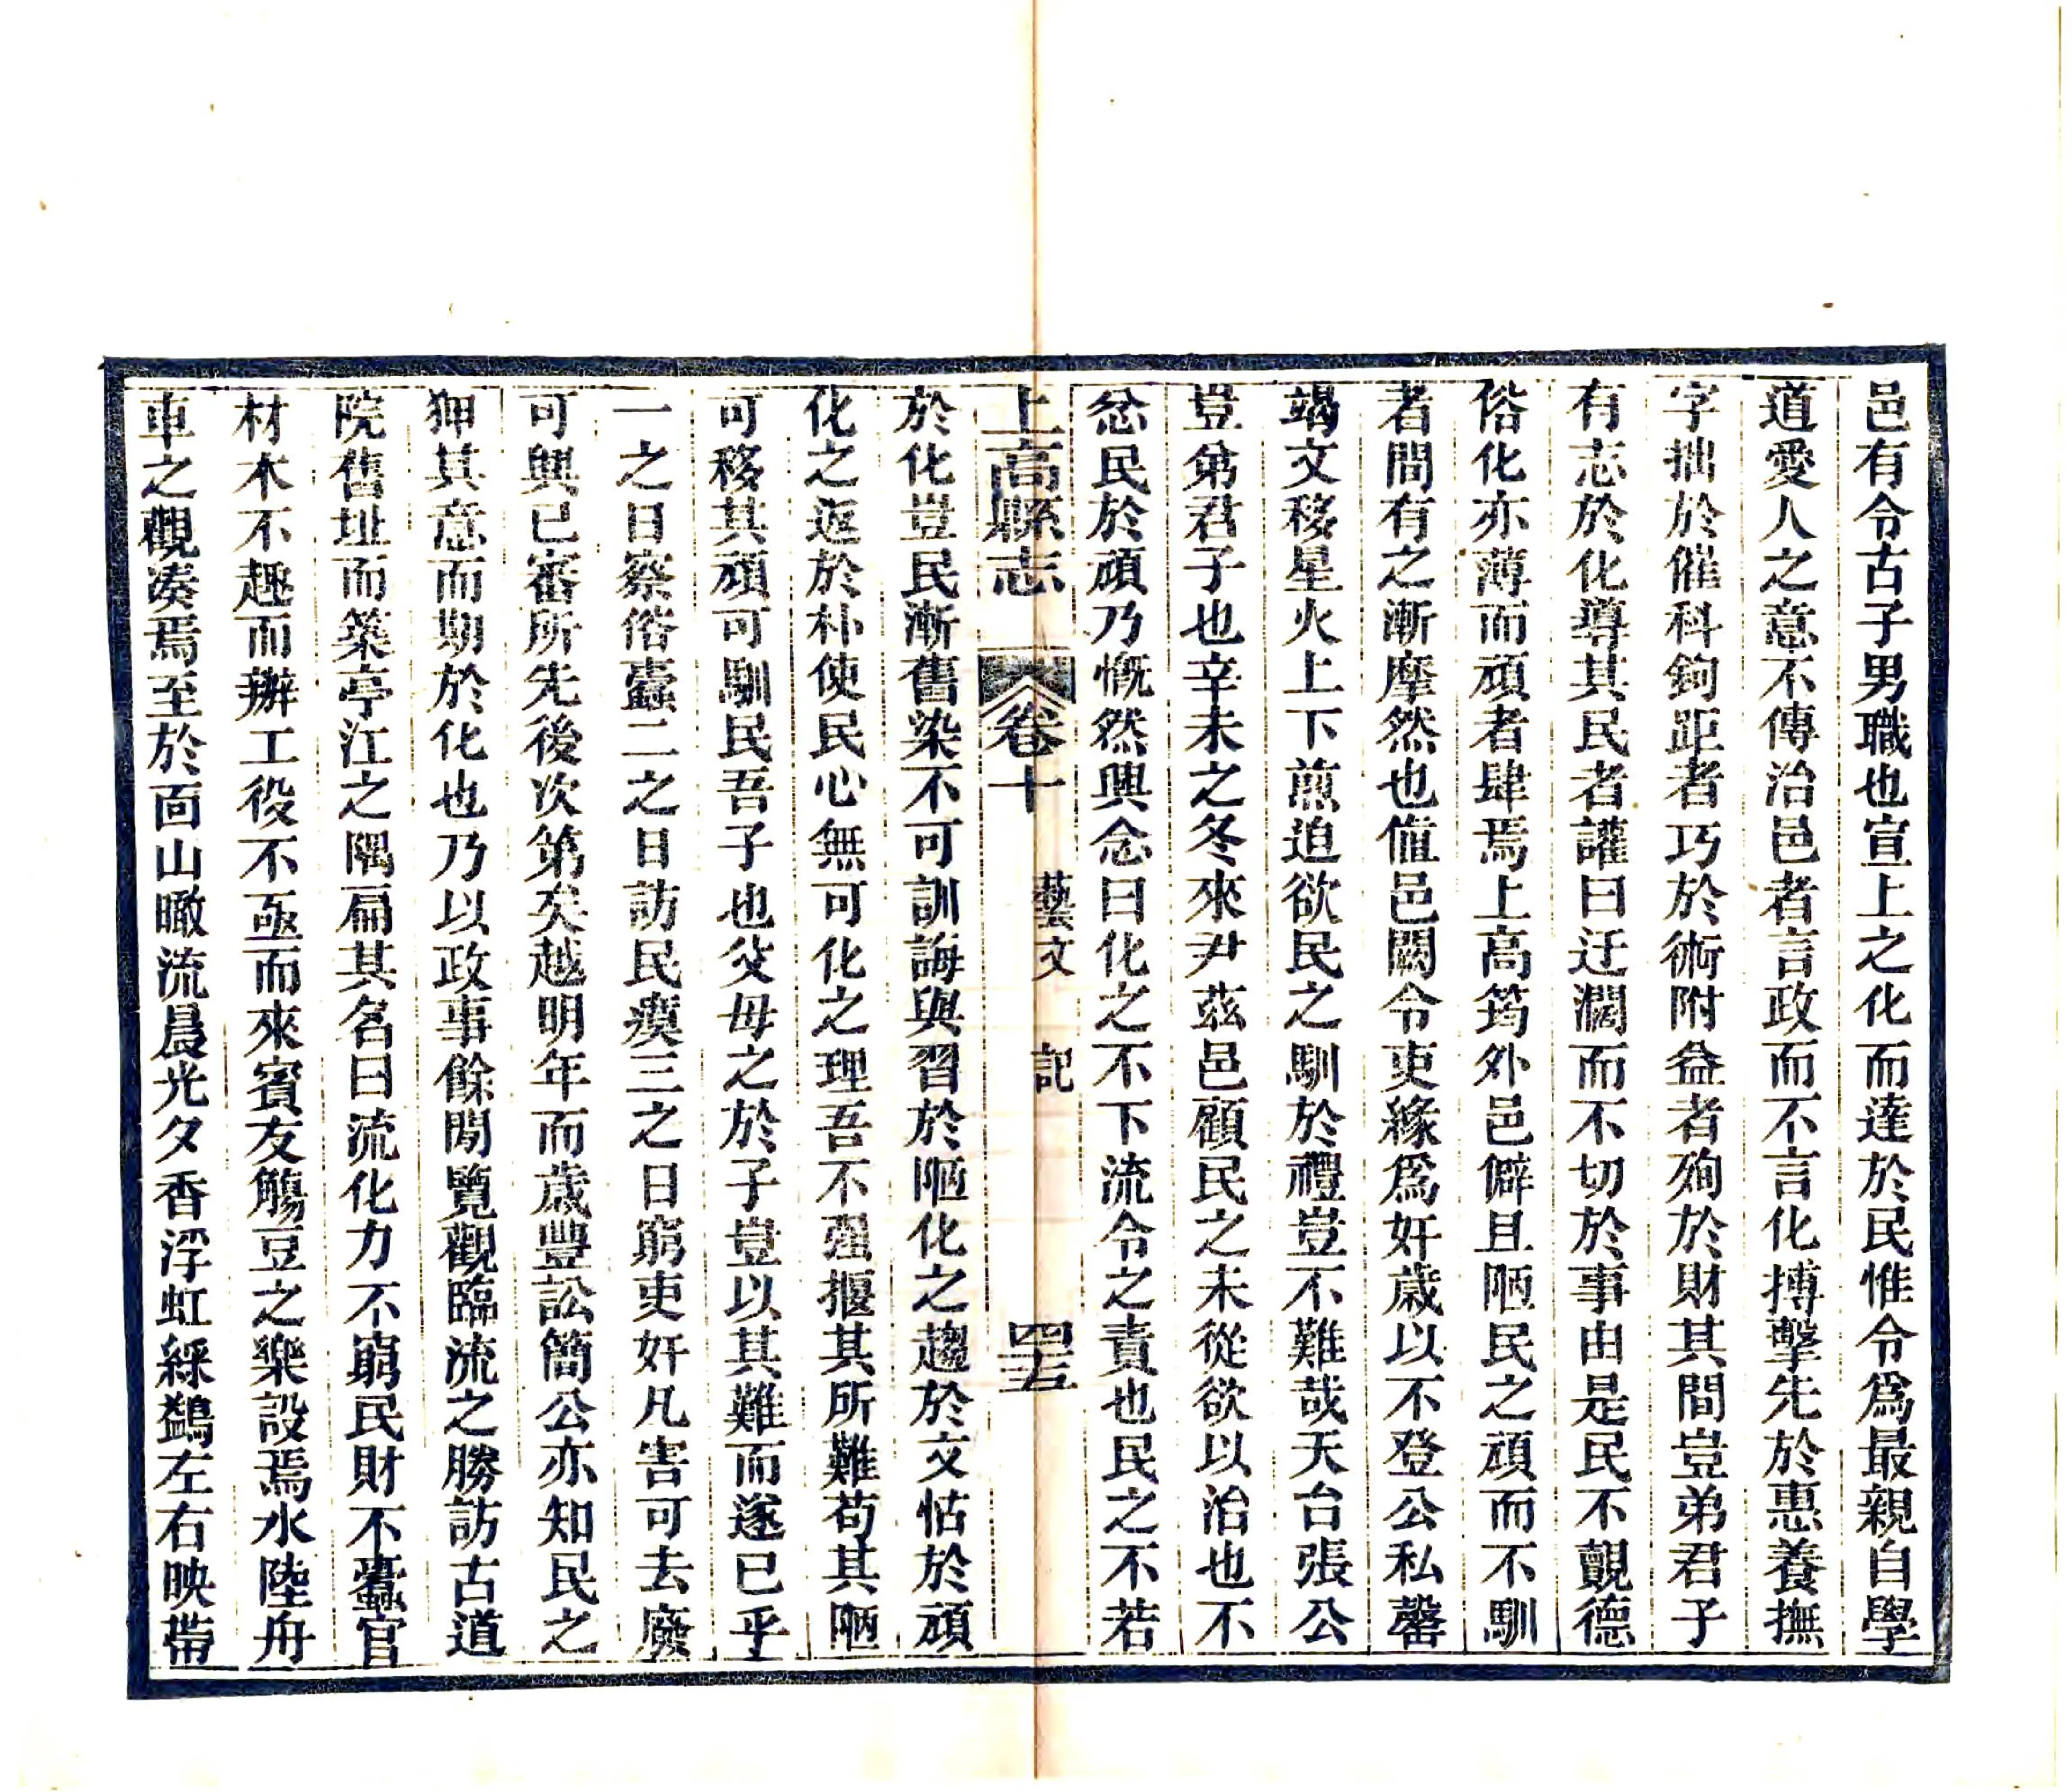 邑有令古子男職也宣上之化而達於民惟令爲最親自學
道愛人之意不傳治邑者言政而不言化搏擊先於惠養撫
字拙於催科鉤距者巧於術附益者殉於財其間豈弟君子
有志於化導其民者讙曰迂濶而不切於事由是民不覿德
俗化亦薄而頑者肆焉上高筠外邑僻且陋民之頑而不馴
者間有之漸摩然也值邑闕令吏緣爲奸歲以不登公私罄
竭文移星火上下煎迫欲民之馴於禮豈不難哉天台張公
豈弟君子也辛未之冬來尹茲邑顧民之未從欲以治也不
忿民於頑乃慨然興念曰化之不下流令之責也民之不若
上高縣志 卷十 藝文 記 四五
於化豈民漸舊染不可訓誨與習於陋化之趨於文怙於頑
化之返於朴使民心無可化之理吾不强揠其所難苟其陋
可移其頑可馴民吾子也父母之於子豈以其難而遂已乎
一之日察俗蠹二之日訪民瘼三之日窮吏奸凡害可去廢
可興已審所先後次第矣越明年而歲豐訟簡公亦知民之
狎其意而期於化也乃以政事餘閒覽觀臨流之勝訪古道
院舊址而築亭江之隅扁其名曰流化力不窮民財不蠹官
材木不趣而辦工役不亟而來賓友觴豆之樂設焉水陸舟
車之觀湊焉至於面山瞰流晨光夕香浮虹綵鷁左右映帶